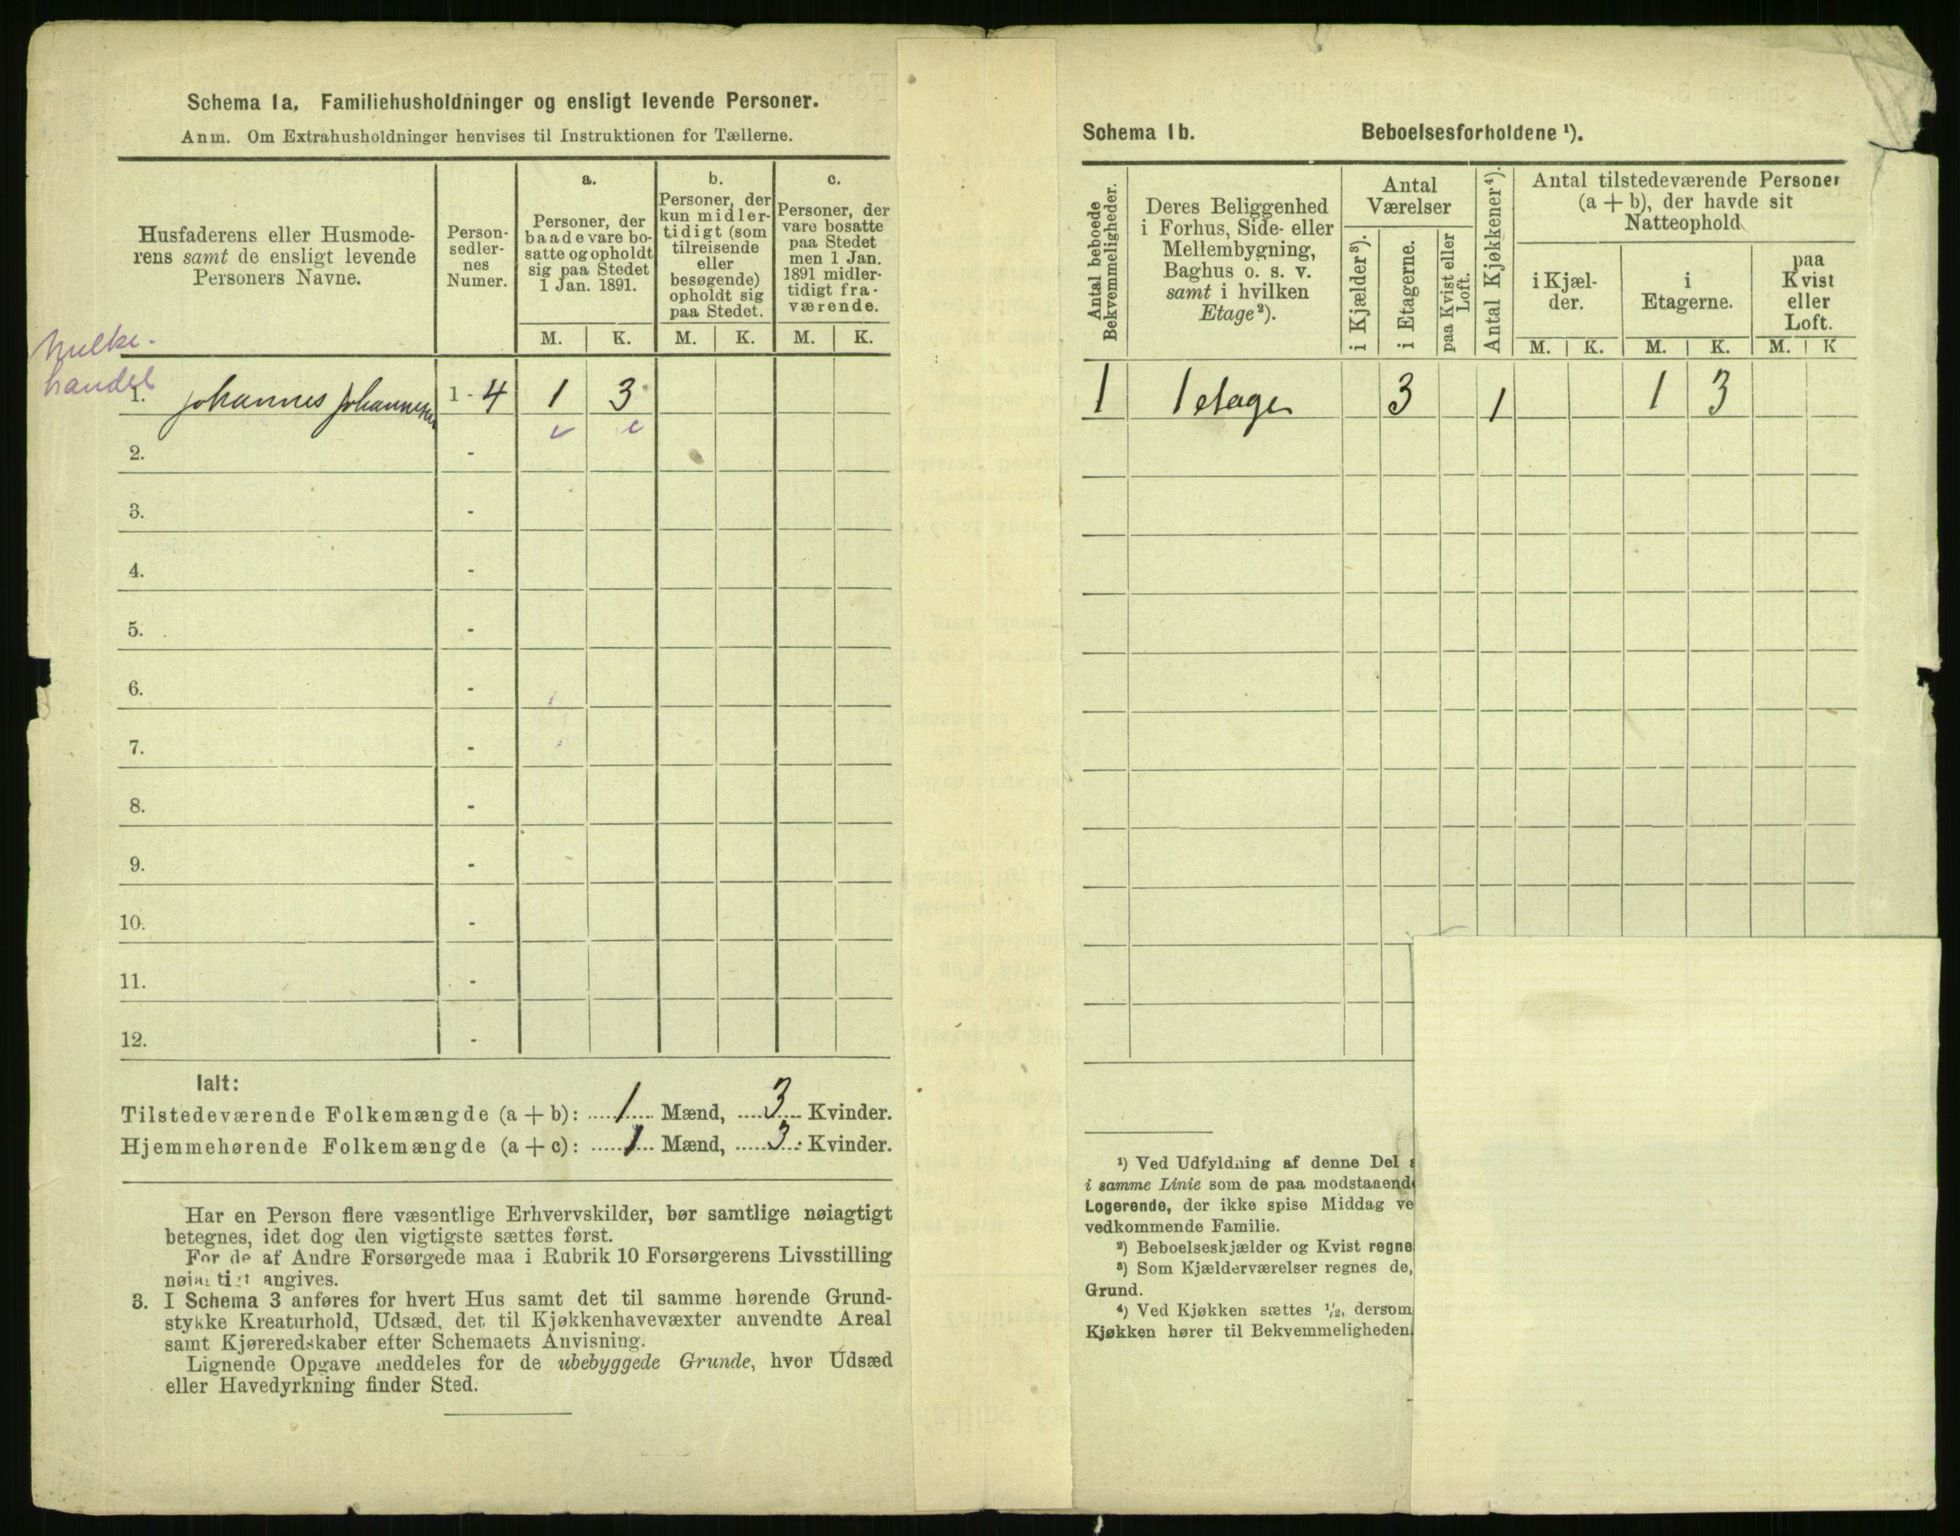 Schema 1a. Familiehusholdninger og ensligt levende Personer.
Anm. Om Extrahusholdninger henvises til Instruktionen for Tællerne.
Husfaderens eller Husmode-
rens samt de ensligt levende
Personers Navne.
Person-
sedler-
nes
Numer.
a.
Personer, der
baade vare bo-
satte og opholdt
sig paa Stedet
1 Jan. 1891.
b.
Personer, der
kun midler-
tidigt (som
tilreisende
eller
besøgende)
opholdt sig
paa Stedet.
c.
Personer, der
vare bosatte
paa Stedet
men 1 Jan.
1891 midler-
tidigt fra-
værende.
M. K. M. K. M. K.
Melke-
handel
1. Johannes Johannesen 1-4 1 3
2. -
3. -
4. -
5. -
6. -
7. -
8. -
9. -
10. -
11. -
12. -
Ialt:
Tilstedeværende Folkemængde (a + b): 1 Mænd, 3 Kvinder.
Hjemmehørende Folkemængde (a + c): 1 Mænd, 3 Kvinder.
Har en Person flere væsentlige Erhvervskilder, bør samtlige nøiagtigt
betegnes, idet dog den vigtigste sættes først.
For de af Andre Forsørgede maa i Rubrik 10 Forsørgerens Livsstilling
angives.
3. I Schema 3 anføres for hvert Hus samt det til samme hørende Grund-
stykke Kreaturhold, Udsæd, det til Kjøkkenhavevæxter anvendte Areal
samt Kjøreredskaber efter Schemaets Anvisning.
Lignende Opgave meddeles for de ubebyggede Grunde, hvor Udsæd
eller Havedyrkning finder Sted.
Schema 1b. Beboelsesforholdene ¹).
Antal beboede
Bekvemmeligheder.
Deres Beliggenhed
i Forhus, Side- eller
Mellembygning,
Baghus o. s. v.
samt i hvilken
Etage ²).
Antal
Værelser
i Kjælder ³).
i Etagerne.
paa Kvist eller
Loft.
Antal Kjøkkener ⁴).
Antal tilstedeværende Personer
(a + b), der havde sit
Natteophold
i Kjæl-
der.
i
Etagerne.
paa
Kvist
eller
Loft.
M. K. M. K. M. K
1 1 etage 3 1 1 3
¹) Ved Udfyldning af denne Del
i samme Linie som de paa modstaaend
Logerende, der ikke spise Middag ve
vedkommende Familie.
²) Beboelseskjælder og Kvist regne
³) Som Kjælderværelser regnes de,
Grund.
⁴) Ved Kjøkken sættes ½, dersom
Kjøkken hører til Bekvemmeligheden